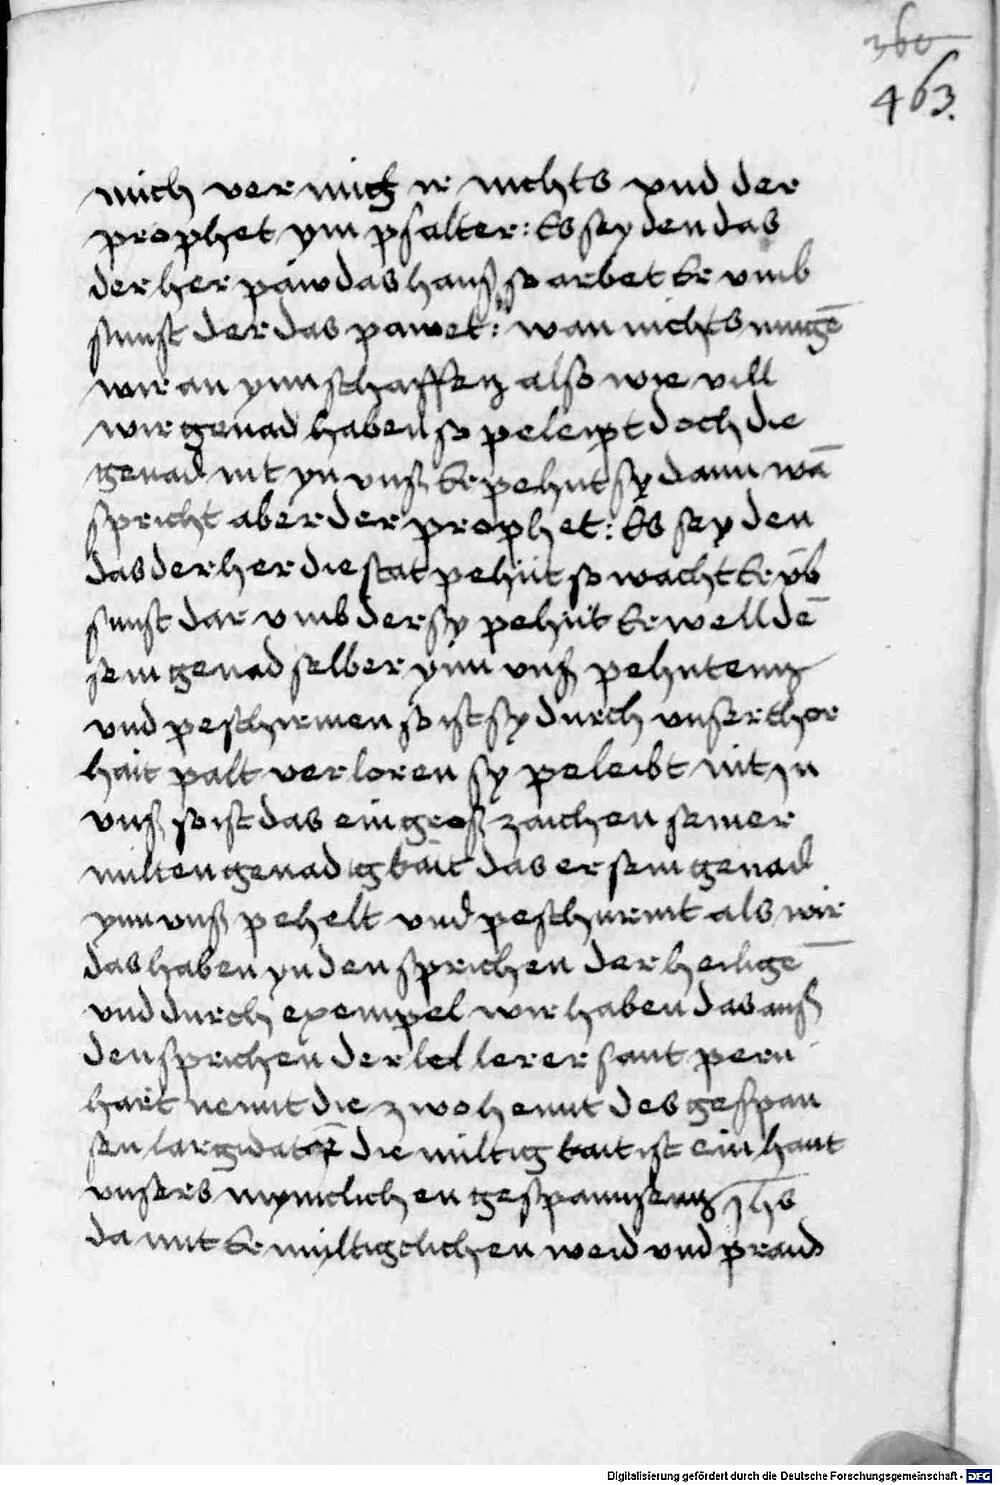 360
463.
mich vermugt ir nichts vnd der
prophet ym psalter: Es sey den das
der her paw das hauß so arbet Er vmb
sunst der das pawet: wan nichts mugē
wir an ynn schaffen also wie vill
wir genad haben so peleipt doch die
genad nit yn vnß Er pehut sy dann wā
spricht aber der prophet: Es sey den
das der her die stat pehüt so wacht Er vb̄
sunst dar vmb der sy pehüt Er well dē
sein genad selber ynn vnß pehuten
vnd peschirmen so ist sy durch vnser thor
hait palt verloren sy peleibt nit in
vnß so ist das ein groß zaichen seiner
milten genadigkait das er sein genad
ynn vnß pehelt vnd peschurmt als wir
das haben yn den sprichen der heiligē
vnd durch exempel wir haben das auß
den sprichen der lel lerer sant pern
hart nennt die zwo hennt des gespan
sen die miltigkait ist ein hant
vnsers mynnclichen gespannsen Jhs
da mit Er miltigclichen weid vnd
Digitalisierung gefördert durch die Deutsche Forschungsgemeinschaft - DFG